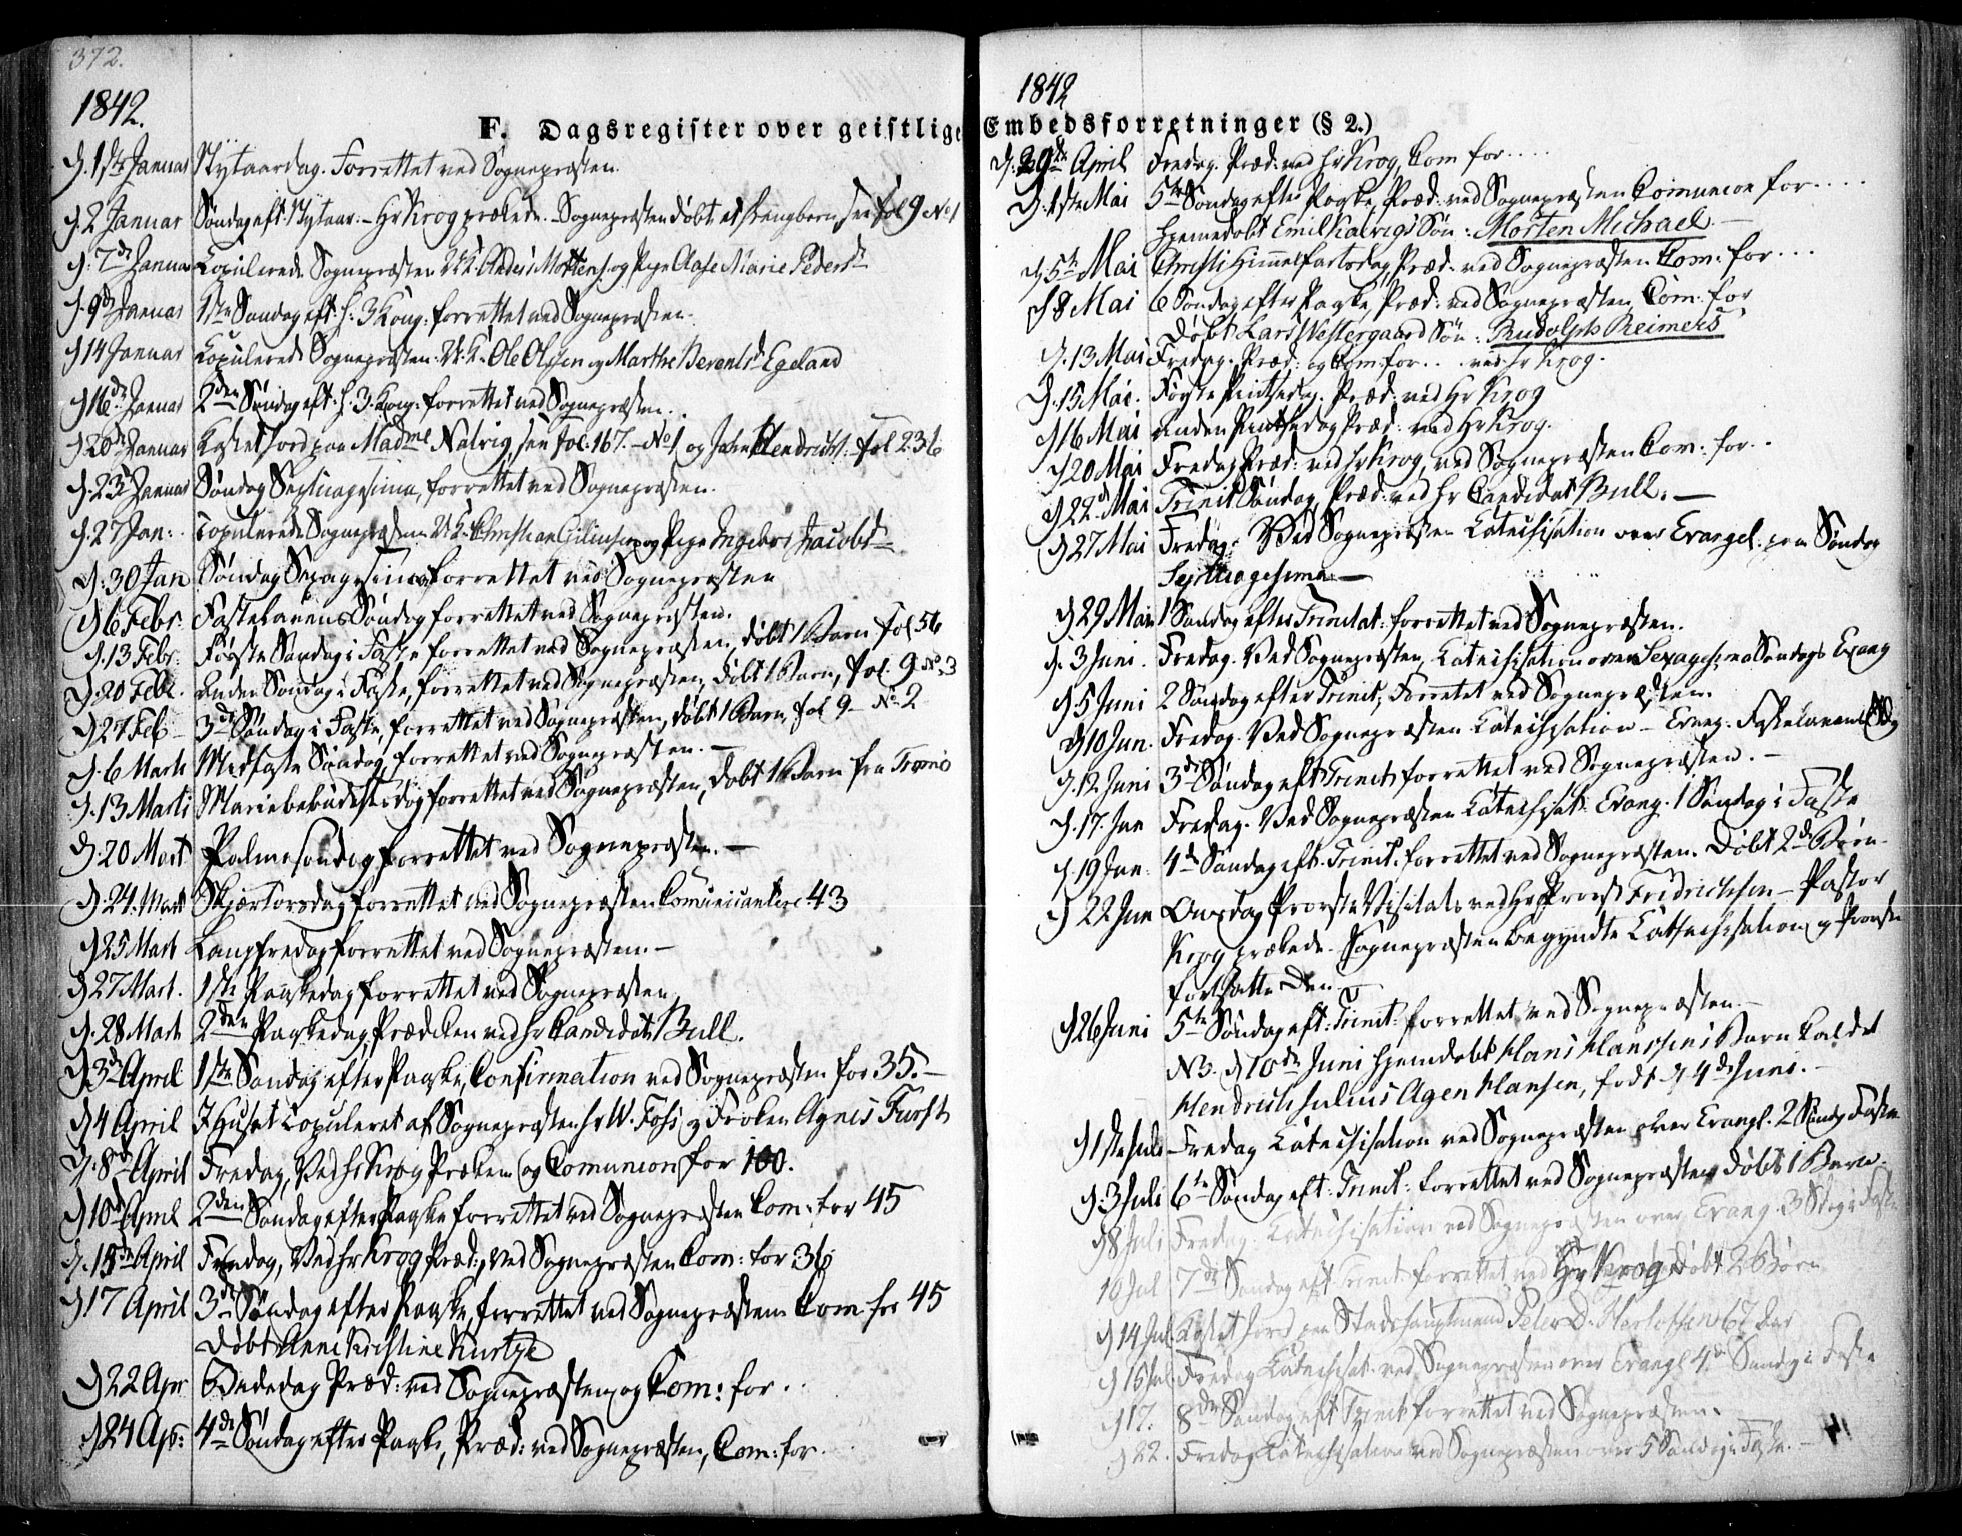 372.
1842.
F. Dagsregister over geistlige
D. 1ste Januar Nytaarsdag. Forrettet ved Sognepræsten.
D. 2 Januar Søndag eft: Nytaar. – Hr Krog prækede. – Sognepræsten døbt et Drengebarn see fol 9 No 1
D. 7de Januar Copulerede Sognepræsten U. K. Anders Mortens. og Pige Aase Marie Pedersd
D. 9de Januar 1ste Søndag eft: H. 3 Kong: forrettet ved Sognepræsten.
D 14 Januar Copulerede Sognepræsten. U. K. Ole Olsen og Marthe Berentsd Egeland
D 16de Januar 2den Søndag eft: H. 3. Kong: forrettet ved Sognepræsten.
D 20de Januar Kastet Jord paa Madme Natvig, see fol. 167. – No 1 og John Hendrichs. fol 236
D. 23de Januar Søndag Septuagesima, forrettet ved Sognepræsten.
D. 27 Jan: Copulerede Sognepræsten U. K. Christian og Pige Ingebor Jacobsd
D. 30 Jan Søndag Sexagesima forrettet ved Sognepræsten
D 6 Febr: Fastelavens Søndag forrettet ved Sognepræsten.
D. 13 Febr: Første Søndag i Faste forrettet ved Sognepræsten, døbt 1 Barn fol 56
D. 20 Feb. Anden Søndag i Faste, forrettet ved Sognepræsten, døbt 1 Barn, fol. 9 No 3
D 27 Feb – 3de Søndag i Faste, forrettet ved Sognepræsten, døbt 1 Barn, fol 9 – No 2
D. 6 Marts Midfaste Søndag, forrettet ved Sognepræsten. –
D. 13 Marti Mariæbebudelsesdag forrettet ved Sognepræsten, døbt 1 Barn fra Tromø
D. 20 Mart Palmesøndag forrettet ved Sognepræsten. –
D. 24. Mart Skjærtorsdag forrettet ved Sognepræsten Comunicantere 43
D 25 Mart Langfredag forrettet ved Sognepræsten. –
D 27 Mart. 1ste Paaskedag forrettet ved Sognepræsten
D. 28 Mart 2den Paaskedag Prædiken ved Hr Candidat Bull.
D 3de April 1ste Søndag efter Paaske, Confirmation ved Sognepræsten for 35. –
D 4 April I Huset Copuleret af Sognepræsten Hr W. Foss og Frøken Agnes Furst
D. 8de April Fredag, Ved Hr Krog Præken og Comunion for 100.
D 10de April 2den Søndag efter Paaske forrettet ved Sognepræsten Com: for 45
D. 15de April Fredag, Ved Hr Krog Præd:, ved Sognepræsten Com: for 36
D 17 April 3de Søndag efter Paaske, forrettet ved Sognepræsten Com. for 45
Døbt Anne Kristine Kurtze
D 22 Apr Bededag Præd: ved Sognepræsten og Com: for .
D 24 Ap: 4de Søndag efter Paaske, Præd: ved Sognepræsten, Com: for .
1842
Embedsforretninger (§ 2.)
D. 29de April Fredag. Præd: ved Hr Krog, Com for . . . .
D. 1ste Mai 5te Søndag efter Paaske, Præd: ved Sognepræsten Comunion for . . . .
Hjemedøbt Emil Søn: Morten Michael –
D 5te Mai Christi Himmelfartsdag Præd. ved Sognepræsten Com: for . . .
D 8 Mai 6 Søndag efter Paaske, Præd: ved Sognepræsten, Com: for
Døbt Lars Vestergaard Søn: Rudolph Reimers
D. 13 Mai Fredag. Præd: og Com: for . . ved Hr Krog.
D. 15 Mai. Første Pintsedag. Præd: ved Hr Krog
D 16 Mai Anden Pintsedag Præd: ved Hr Krog.
D 20 Mai Fredag Præd: ved Hr Krog, ved Sognepræsten Com: for . .
D 22d Mai Trinit. Søndag, Præd: ved Hr Candidat Bull. –
D 27 Mai Fredag. Ved Sognepræsten Catechisation over Evangel: paa Søndag
Septuagesima. –
D 29 Mai 1 Søndag efter Trinitat: forrettet ved Sognepræsten.
D. 3 Juni. Fredag. Ved Sognepræsten, Catechisation over Sexagesima Søndags Evang
D 5 Juni 2 Søndag efter Trinit; Forrettet ved Sognepræsten.
D 10 Jun. Fredag. Ved Sognepræsten Catechisation – Evang. Fastelavens Sdg
D. 12 Juni 3de Søndag eft Trinit: forrettet ved Sognepræsten. –
D. 17. Jun Fredag. Ved Sognepræsten Catechisat: Evang. 1 Søndag i Faste
D. 19 Jun. 4de Søndag eft. Trinit. forrettet ved Sognepræsten. Døbt 2de Børn.
D 22 Jun Onsdag Provste Visitats ved Hr Provst Fridrichsen – Pastor
Krog prækede. Sognepræsten begyndte Catechisation og Provsten
fortsatte den. –
D 26 Juni 5te Søndag eft: Trinit: forrettet ved Sognepræsten. –
NB. D 10de Juni Hjemdøbt Hans Hanssens Barn kaldet
Hendrich Julius Agen Hansen, født D 4de Juni. –
D 1ste Juli Fredag Catechisation ved Sognepræsten over Evangl. 2 Søndg Faste
D. 3 Juli 6te Søndag eft: Trinit: forrettet ved Sognepræsten, døbt 1 Barn.
D 8 Juli Fredag. Catechisation ved Sognepræsten over Evang. 3 Sdg i Faste
10 Jul 7de Søndag eft Trinit forrettet ved Hr Krog døbt 2 Børn
D 14 Jul. Kastet Jord paa Stadshauptmand Peter D. Herlofsen 67 Aar
D 15 Jul. Fredag Catechisat: ved Sognepræsten over Evangl 4de Søndg i Faste
D 17. 8de Søndag eft Trinit forrettet ved Sognepræsten.
D 22. Fredag Catechisation ved Sognepræsten over 5 Søndag i Faste. –